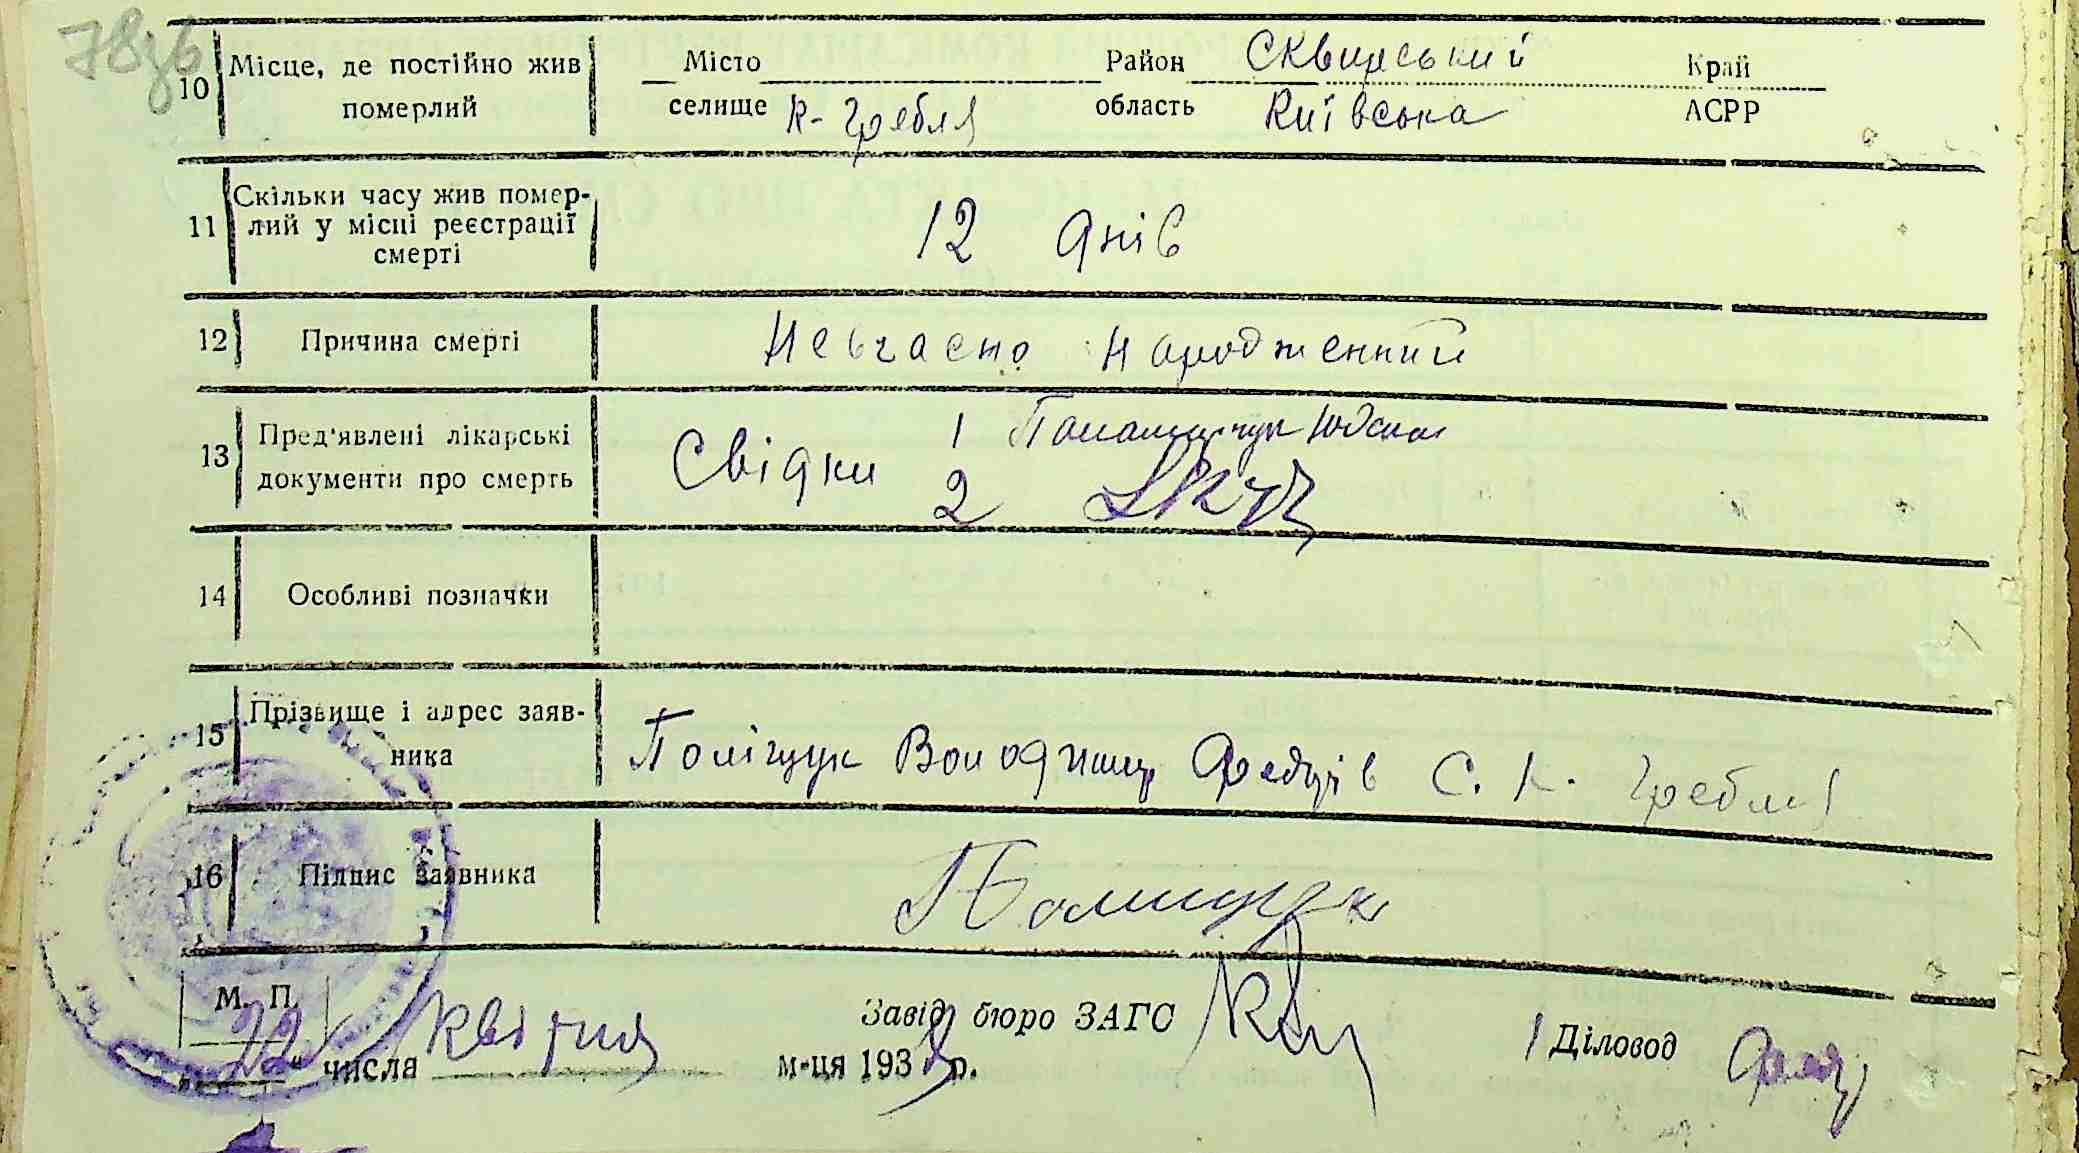 78зв
10 Місце, де постійно жив померлий Місто Район Сквирський Край
селище К-Гребля область Київська АСРР
11 Скільки часу жив померлий у місці реєстрації смерті 12 днів
12 Причина смерті Невчасно народженний
13 Пред'явлені лікарські документи про смерть Свідки 1
2
14 Особливі позначки
15 Прізвище і адрес заявника Поліщук Володимир С. К. Гребля
16 Підпис заявника Полищук
М. П. Завід. бюро ЗАГС Діловод
„22" числа квітня м-ця 193 р.